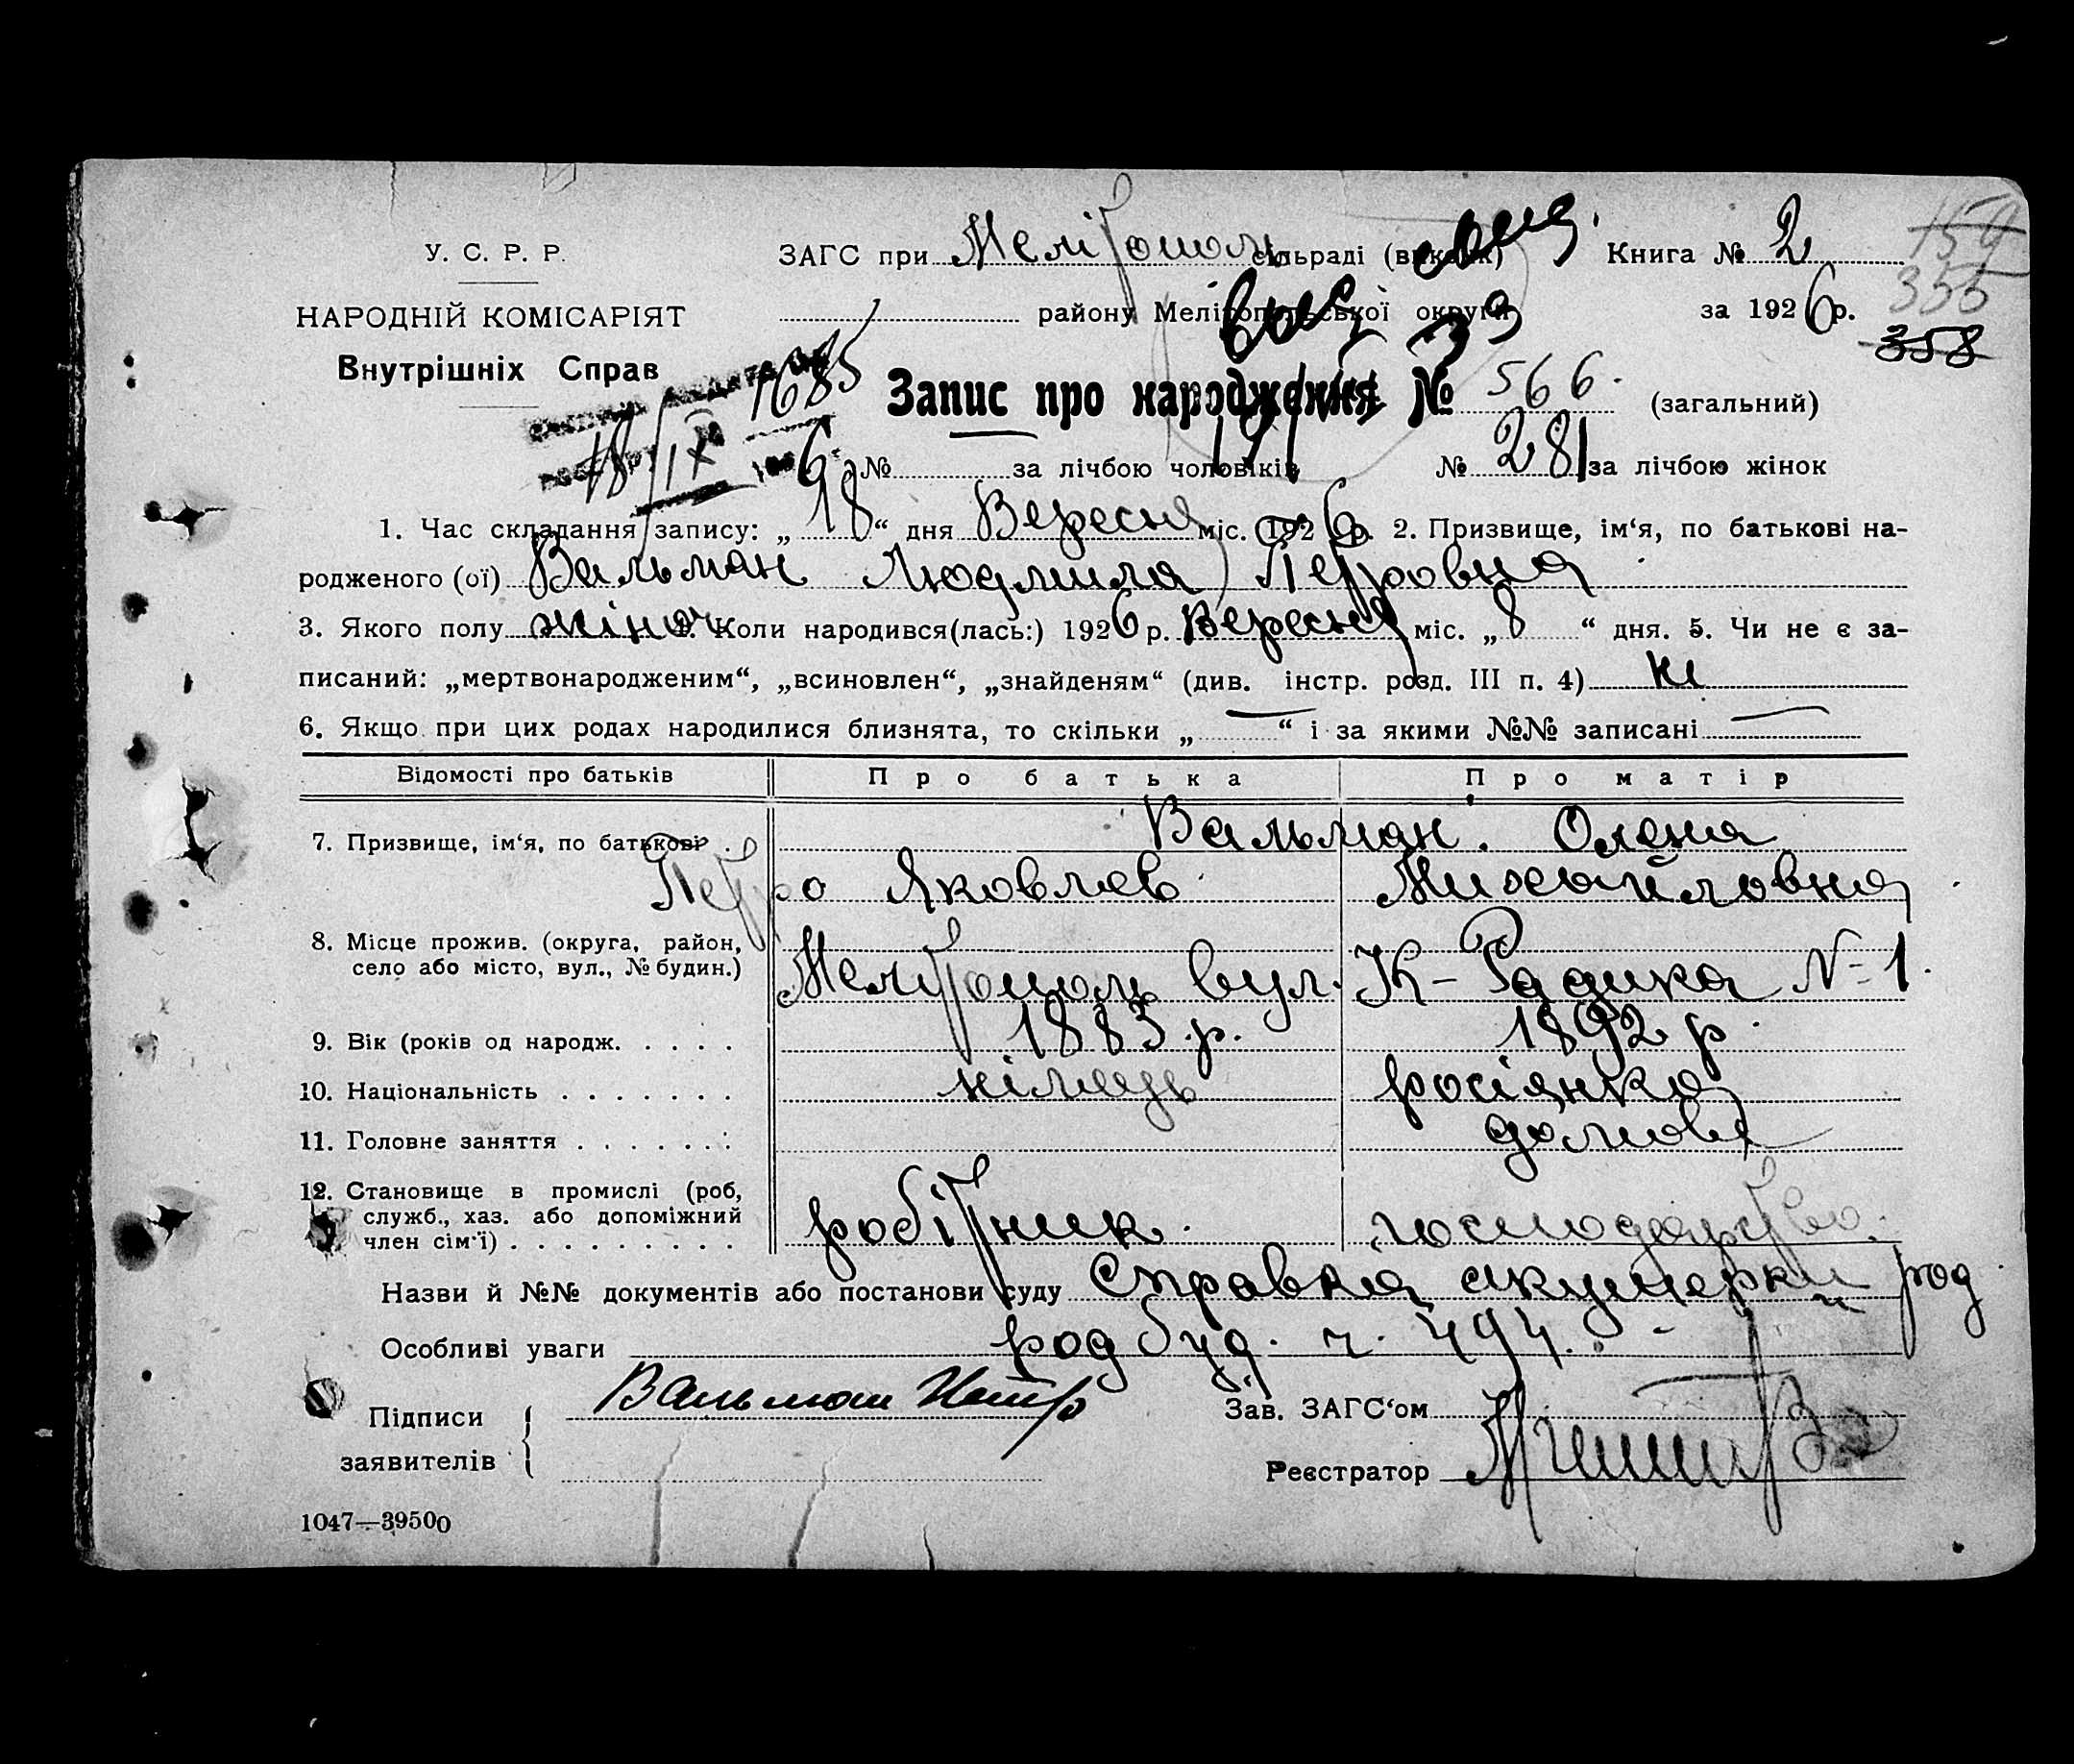 У. С. Р. Р.
НАРОДНІЙ КОМІСАРІЯТ
Внутрішніх Справ
ЗАГС при Мелітополь сільраді (виконк) Книга № 2
району Мелітопольської округи за 1926 р.
159
355
358
Запис про народження № 566. (загальний)
1685
18/IX 6
№ за лічбою чоловіків № 281 за лічбою жінок
1. Час складання запису: „18“ дня Вересня міс. 1926 р. 2. Призвище, ім‘я, по батькові на-
родженого (ої) Вальман Людмила Петровна
3. Якого полу жіноч 4. Коли народився(лась:) 1926 р. Вересня міс. „8“ дня. 5. Чи не є за-
писаний: „мертвонародженим“, „всиновлен“, „знайденям“ (див. інстр. розд. III п. 4) ні
6. Якщо при цих родах народилися близнята, то скільки „—“ і за якими №№ записані —
Відомості про батьків Про батька Про матір
7. Призвище, ім‘я, по батькові . Вальман. Олена
Петро Яковлев Михайловна
8. Місце прожив. (округа, район,
село або місто, вул., № будин.) Мелітополь вул. К-Радика № 1.
9. Вік (років од народж. . . . . 1883 р. 1892 р.
10. Національність . . . . . . . німець росіянка
11. Головне заняття . . . . . . . домове
12. Становище в промислі (роб,
служб., хаз. або допоміжний робітник. господарство.
член сім‘ї) . . . . . . . . .
Назви й №№ документів або постанови суду Справка акушерки род
Особливі уваги род буд. ч. 494. -
Підписи Вальман Петр Зав. ЗАГС‘ом
заявителів Реєстратор
1047—39500